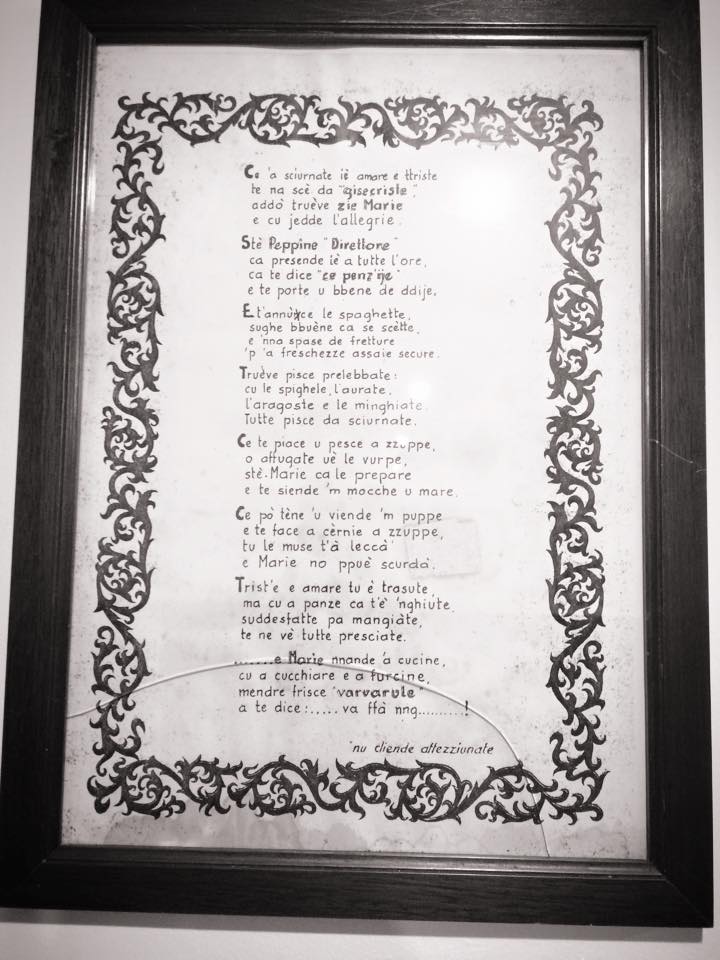 Ce 'a sciurnate iè amare e ttriste
te na scè da "gisecriste",
addò truève zie Marie
e cu jedde l'allegrie.
Stè Peppine "Direttore"
ca presende iè a tutte l'ore,
ca te dice "ce penz'ije"
e te porte u bbene de ddije,
E t'annùẋce le spaghette,
sughe bbuène ca se scètte,
e 'nna spase de fretture
'p 'a freschezze assaie secure.
Truève pisce prelebbate:
cu le spighele, l'aurate,
l'aragoste e le minghiate.
Tutte pisce da sciurnate.
Ce te piace u pesce a zzuppe,
o affugate uè le vurpe,
stè. Marie ca le prepare
e te siende 'm mocche u mare.
Ce pò tène 'u viende 'm puppe
e te face a cèrnie a zzuppe,
tu le muse t'à leccà
e Marie no ppuè scurdà.
Trist'e e amare tu è trasute,
ma cu a panze ca t'è 'nghiute
suddesfatte pa mangiàte,
te ne vè tutte presciate.
.......e Marie nnande 'a cucine,
cu a cucchiare e a furcine,
mendre frisce "varvarule"
a te dice :..... va ffà nng.........!
'nu cliende affezziunate